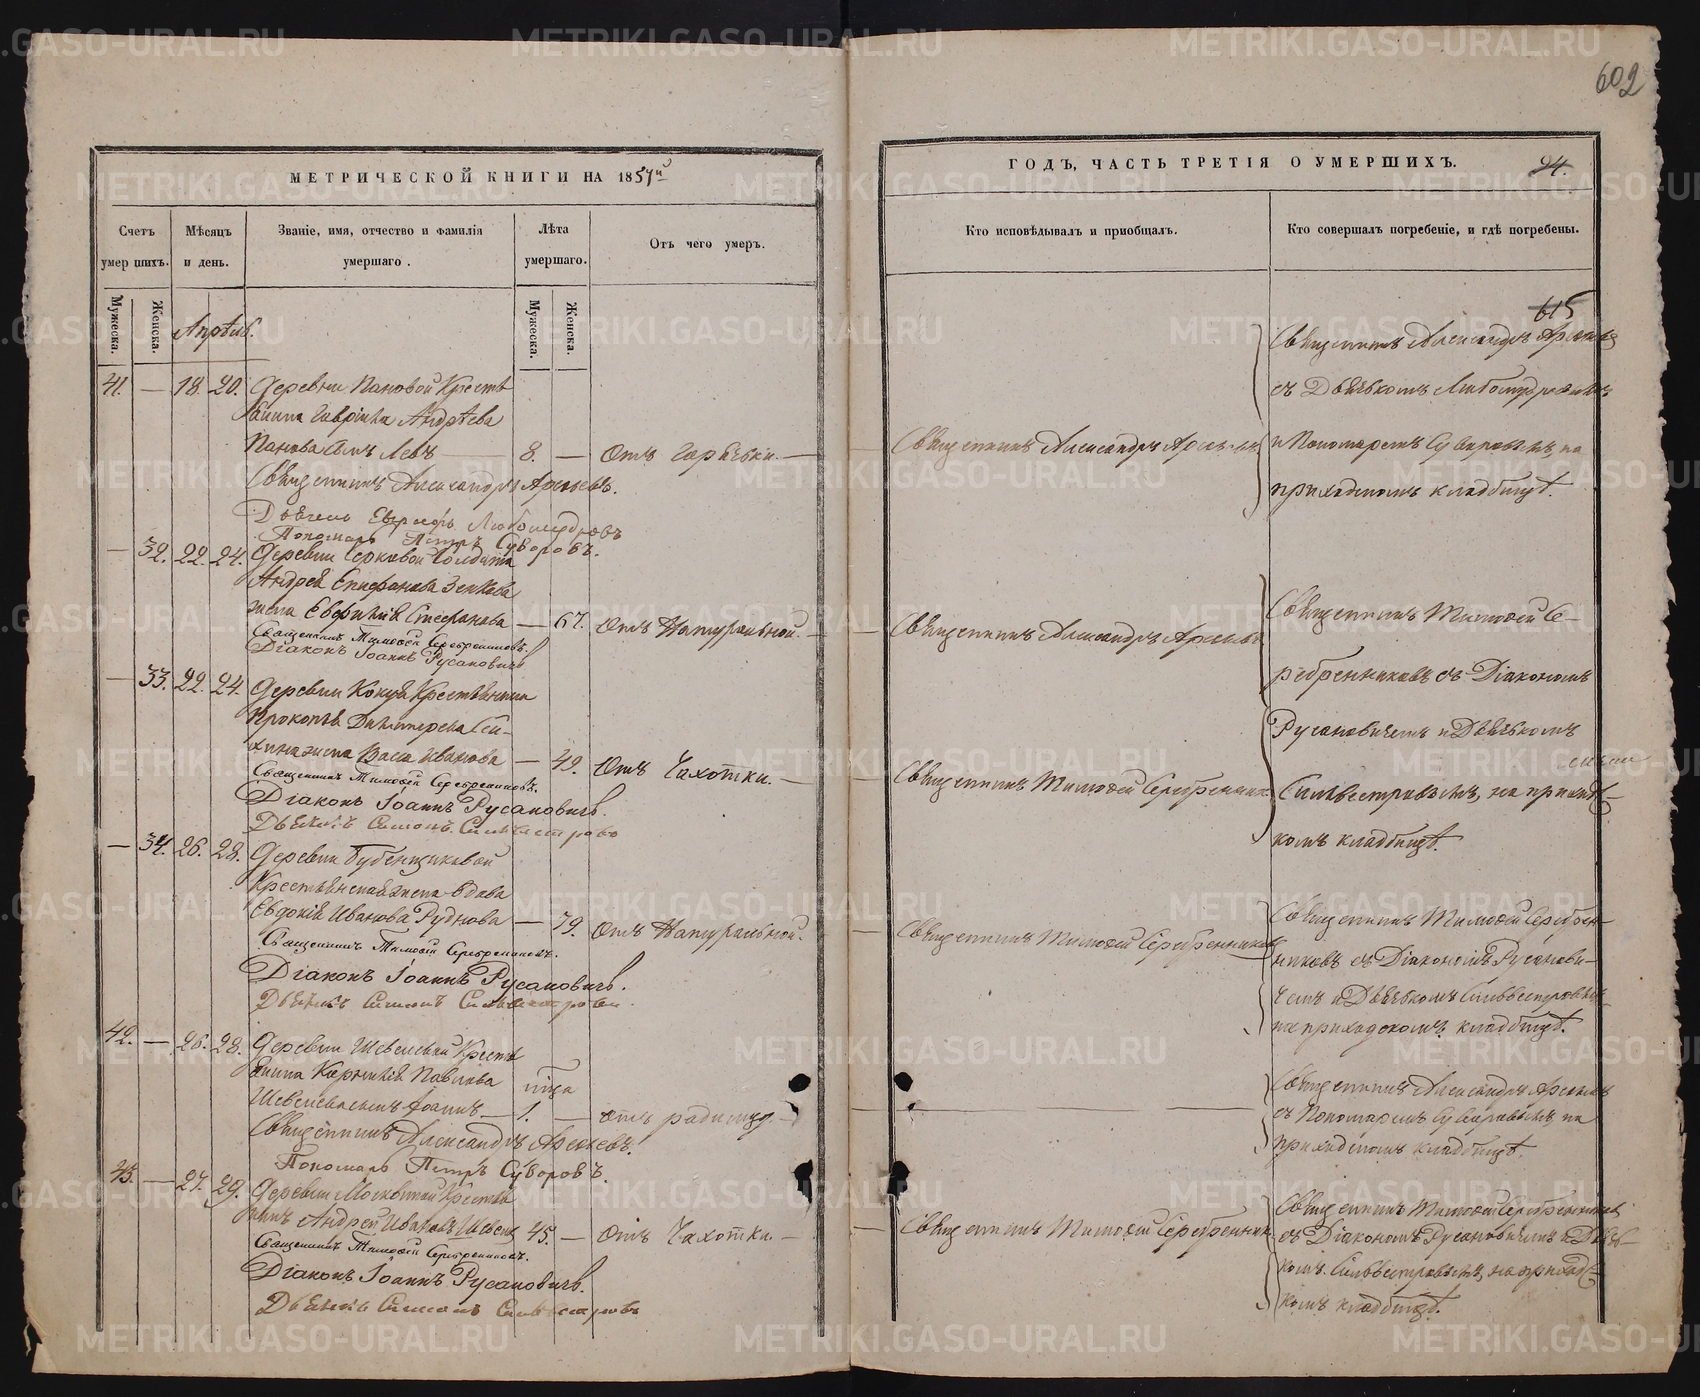 602
МЕТРИЧЕСКОЙ КНИГИ НА 1857й
Счетъ умершихъ.
Мужеска.
Женска.
Мѣсяцъ и день.
Званіе, имя, отчество и фамилія умершаго.
Лѣта умершаго.
Мужеска.
Женска.
Отъ чего умеръ.
Апрѣль.
41. — 18. 20. Деревни Пановой Кресть
янина Гавріила Андрѣева
Панова сынъ Левъ — 8. — Отъ Горячки. —
Священникъ Александръ Арсеньевъ.
Дьячекъ Любомудровъ
Пономарь Петръ Суворовъ.
— 32. 22. 24. Деревни Солдата
Андрея Епифанова Зенкова
жена Евфимія Стефанова — 67. Отъ Натуральной. —
Священникъ Тимофей Серебренниковъ.
Діаконъ Іоаннъ Русановичъ
— 33. 22. 24. Деревни Кокуя Крестьянина
Прокопья
жена Васса Иванова — 49. Отъ Чахотки. —
Священникъ Тимофей Серебренниковъ.
Діаконъ Іоаннъ Русановичъ.
Дьячекъ Симонъ Сильвестровъ
— 34. 26. 28. Деревни Бубенщиковой
Крестьянская жена вдова
Евдокія Иванова Руднова — 79. Отъ Натуральной. —
Священникъ Тимофей Серебренниковъ.
Діаконъ Іоаннъ Русановичъ.
Дьячекъ Симонъ Сильвестровъ
42. — 26. 28. Деревни Шевелевой Кресть
янина Корнилія Павлова
Шевелева сынъ Іоаннъ — 1. — Отъ родимцу. —
Священникъ Александръ Арсеньевъ.
Пономарь Петръ Суворовъ.
43. — 27. 29. Деревни Москвиной Крестья
нинъ Андрей Ивановъ 45. — Отъ Чахотки. —
Священникъ Тимофей Серебренниковъ.
Діаконъ Іоаннъ Русановичъ.
Дьячекъ Симонъ Сильвестровъ
ГОДЪ, ЧАСТЬ ТРЕТІЯ О УМЕРШИХЪ.
Кто исповѣдывалъ и пріобщалъ.
Кто совершалъ погребеніе, и гдѣ погребены.
615
Священникъ Александръ Арсеньевъ
съ Дьячькомъ Любомудровымъ
Священникъ Александръ Арсеньевъ
и Пономаремъ Суворовымъ, на
приходскомъ кладбищѣ.
Священникъ Александръ Арсеньевъ
Священникъ Тимофей Се-
ребренниковъ съ Діакономъ
Русановичемъ и Дьячькомъ
Священникъ Тимофей Серебренник
Сильвестровымъ, на приходс
комъ кладбищѣ.
Священникъ Тимофей Серебренниковъ
Священникъ Тимофей Серебрен-
никовъ съ Діакономъ Русанови-
чемъ и Дьячькомъ Сильвестровымъ
на приходскомъ кладбищѣ.
Священникъ Александръ Арсеньевъ
съ Пономаремъ Суворовымъ на
приходскомъ кладбищѣ.
Священникъ Тимофей Серебренник
Священникъ Тимофей Серебренниковъ
съ Діакономъ Русановичемъ и Дьяч-
комъ Сильвестровымъ, на приходс
комъ кладбищѣ.
METRIKI.GASO-URAL.RU